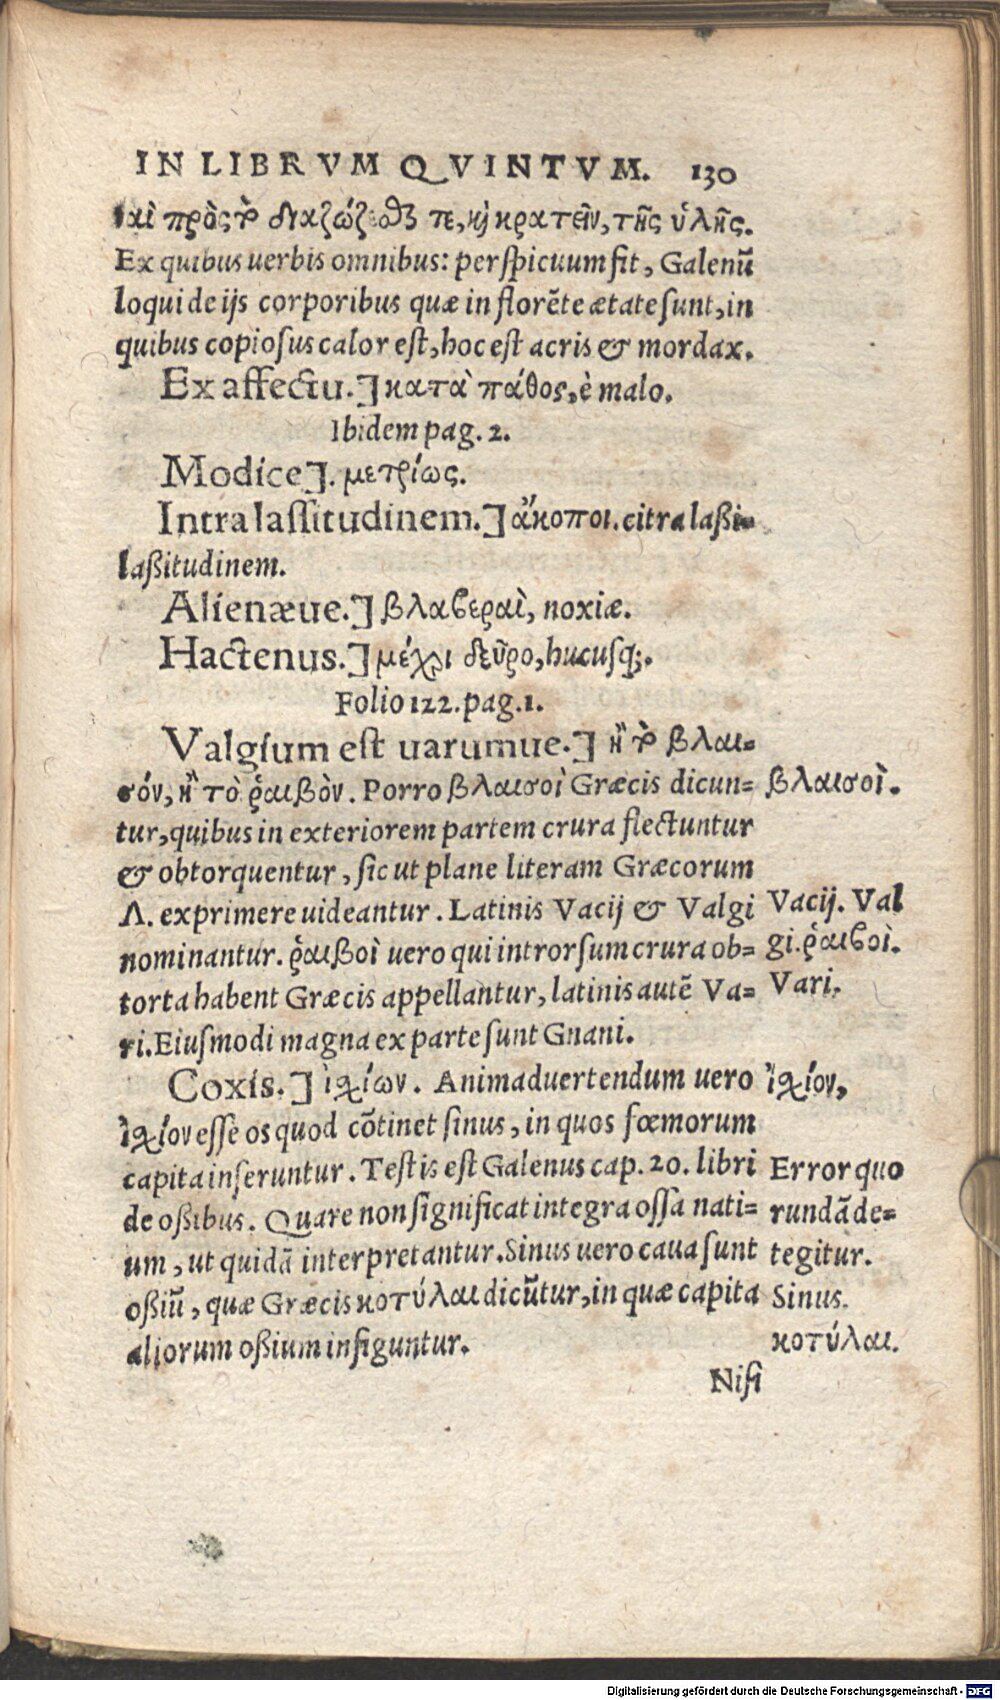 IN LIBRVM QVINTVM. 130
ναὶ πρὸς τὸ διαζώζεσθαί τε, καὶ κρατεῖν, τῆς ὑλῆς.
Ex quibus uerbis omnibus: perspicuum fit, Galenũ
loqui de ijs corporibus quæ in florẽte ætate sunt, in
quibus copiosus calor est, hoc est acris & mordax.
Ex affectu.] κατὰ πάθος, è malo.
Ibidem pag. 2.
Modice]. μετρίως.
Intra lassitudinem.] ἄκοποι. citra laßi-
laßitudinem.
Alienæue.] βλαβεραὶ, noxiæ.
Hactenus.] μέχρι δεῦρο, hucusq;.
Folio 122. pag. 1.
Valgium est uarumue.] ἢ τὸ βλαι=
σόν, ἢ τὸ ῥαιβὸν. Porro βλαισοὶ Græcis dicun= βλαισοὶ.
tur, quibus in exteriorem partem crura flectuntur
& obtorquentur, sic ut plane literam Græcorum
Λ. exprimere uideantur. Latinis Vacij & Valgi Vacij. Val
nominantur. ῥαιβοὶ uero qui introrsum crura ob= gi. ῥαιβοὶ.
torta habent Græcis appellantur, latinis autẽ Va= Vari.
ri. Eiusmodi magna ex parte sunt Gnani.
Coxis.] ἰχίων. Animaduertendum uero ἰχίον,
ἰχίον esse os quod cõtinet sinus, in quos fœmorum
capita inseruntur. Testis est Galenus cap. 20. libri Error quo
de oßibus. Quare non significat integra ossa nati= rundã de=
um, ut quidã interpretantur. Sinus uero caua sunt tegitur.
oßiũ, quæ Græcis κοτύλαι dicũtur, in quæ capita Sinus.
aliorum oßium infiguntur. κοτύλαι.
Nisi
Digitalisierung gefördert durch die Deutsche Forschungsgemeinschaft - DFG